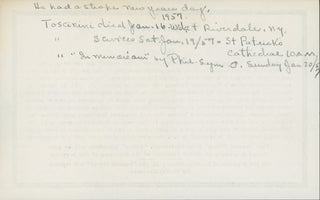 He had a stroke New years day,
1957.
Toscanini died Jan. 16 - 1957 at Riverdale, N.Y.
" Services Sat. Jan. 19/57 - St Patricks
Cathedral 10 A.M.
" "In Memoriam" by Phil-Sym O. Sunday Jan 20/57